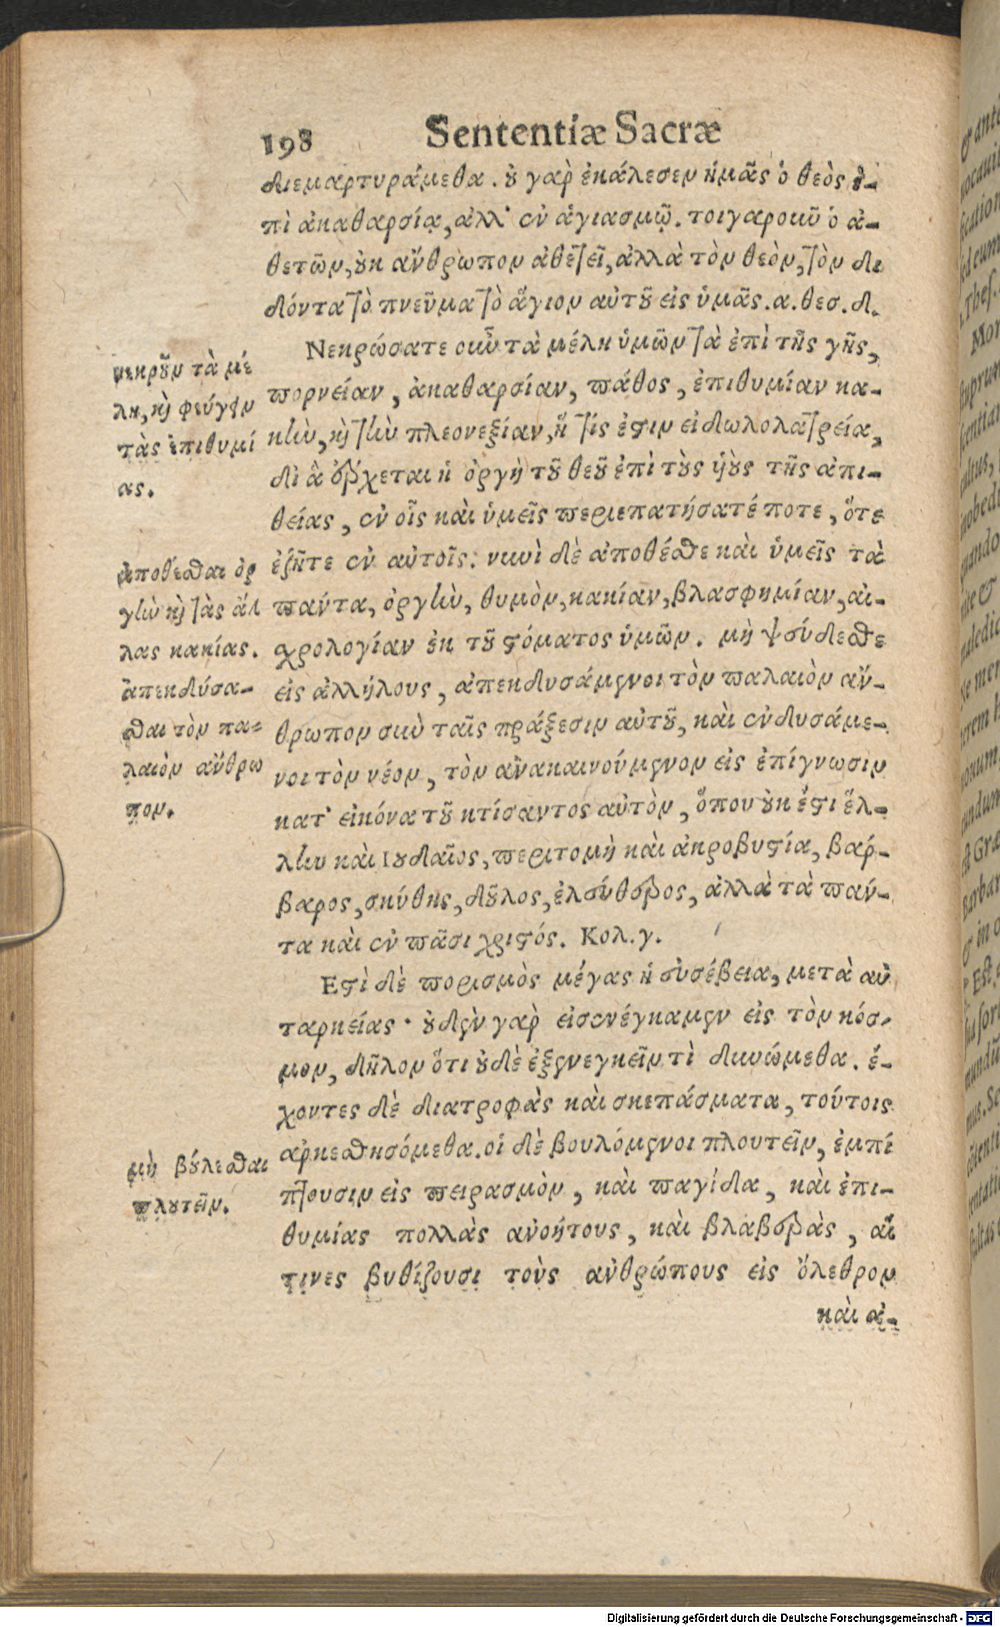 198 Sententiæ Sacræ
διεμαρτυράμεθα. ȣ γὰρ ἐκάλεσεν ἡμᾶς ὁ θεὸς ἐ-
πὶ ἀκαθαρσίᾳ, ἀλλ' ἐν ἁγιασμῷ. τοιγαροῦν ὁ ἀ-
θετῶν, ȣκ ἄνθρωπον ἀθετεῖ, ἀλλὰ τὸν θεὸν, τὸν δι
δόντα τὸ πνεῦμα τὸ ἅγιον αὐτȣ͂ εἰς ὑμᾶς. α. θεσ. δ.
Νεκρώσατε οὖν τὰ μέλη ὑμῶν τὰ ἐπὶ τῆς γῆς,
πορνείαν, ἀκαθαρσίαν, πάθος, ἐπιθυμίαν κα-
κὴν, καὶ τὴν πλεονεξίαν, ἥ τίς ἐστιν εἰδωλολατρεία,
δι ἃ ἔρχεται ἡ ὀργὴ τȣ͂ θεȣ͂ ἐπὶ τȣ̀ς ὑȣ̀ς τῆς ἀπι-
θείας, ἐν οἷς καὶ ὑμεῖς περιεπατήσατέ ποτε, ὅτε
ἐζῆτε ἐν αὐτοῖς: νυνὶ δὲ ἀποθέσθε καὶ ὑμεῖς τὰ
πάντα, ὀργὴν, θυμὸν, κακίαν, βλασφημίαν, αἰ-
σχρολογίαν ἐκ τȣ͂ στόματος ὑμῶν. μὴ ψεύδεσθε
εἰς ἀλλήλους, ἀπεκδυσάμενοι τὸν παλαιὸν ἄν-
θρωπον σὺν ταῖς πράξεσιν αὐτȣ͂, καὶ ἐνδυσάμε-
νοι τὸν νέον, τὸν ἀνακαινούμενον εἰς ἐπίγνωσιν
κατ' εἰκόνα τȣ͂ κτίσαντος αὐτὸν, ὅπου ȣκ ἔστι ἕλ-
λην καὶ Ιουδαῖος, περιτομὴ καὶ ἀκροβυστία, βάρ-
βαρος, σκύθης, δȣ͂λος, ἐλεύθερος, ἀλλὰ τὰ πάν-
τα καὶ ἐν πᾶσι χριστός. Κολ. γ.
Εστὶ δὲ πορισμὸς μέγας ἡ εὐσέβεια, μετὰ αὐ
ταρκείας· ȣδὲν γὰρ εἰσενέγκαμεν εἰς τὸν κόσ-
μον, δῆλον ὅτι ȣδὲ ἐξενεγκεῖν τὶ δυνώμεθα. ἔ-
χοντες δὲ διατροφὰς καὶ σκεπάσματα, τούτοις
ἀρκεσθησόμεθα. οἱ δὲ βουλόμενοι πλουτεῖν, ἐμπί
πτουσιν εἰς πειρασμὸν, καὶ παγίδα, καὶ ἐπι-
θυμίας πολλὰς ἀνοήτους, καὶ βλαβερὰς, αἵ
τινες βυθίζουσι τοὺς ἀνθρώπους εἰς ὄλεθρον
καὶ ἀ-
νεκρȣ͂ν τὰ μέ
λη, καὶ φεύγειν
τὰς ἐπιθυμί
ας.
ἀποθέσθαι ὀρ
γὴν καὶ τὰς ἄλ
λας κακίας.
ἀπεκδύσα-
σθαι τὸν πα-
λαιὸν ἄνθρω
πον.
μὴ βȣ́λεσθαι
πλȣτεῖν.
Digitalisierung gefördert durch die Deutsche Forschungsgemeinschaft - DFG